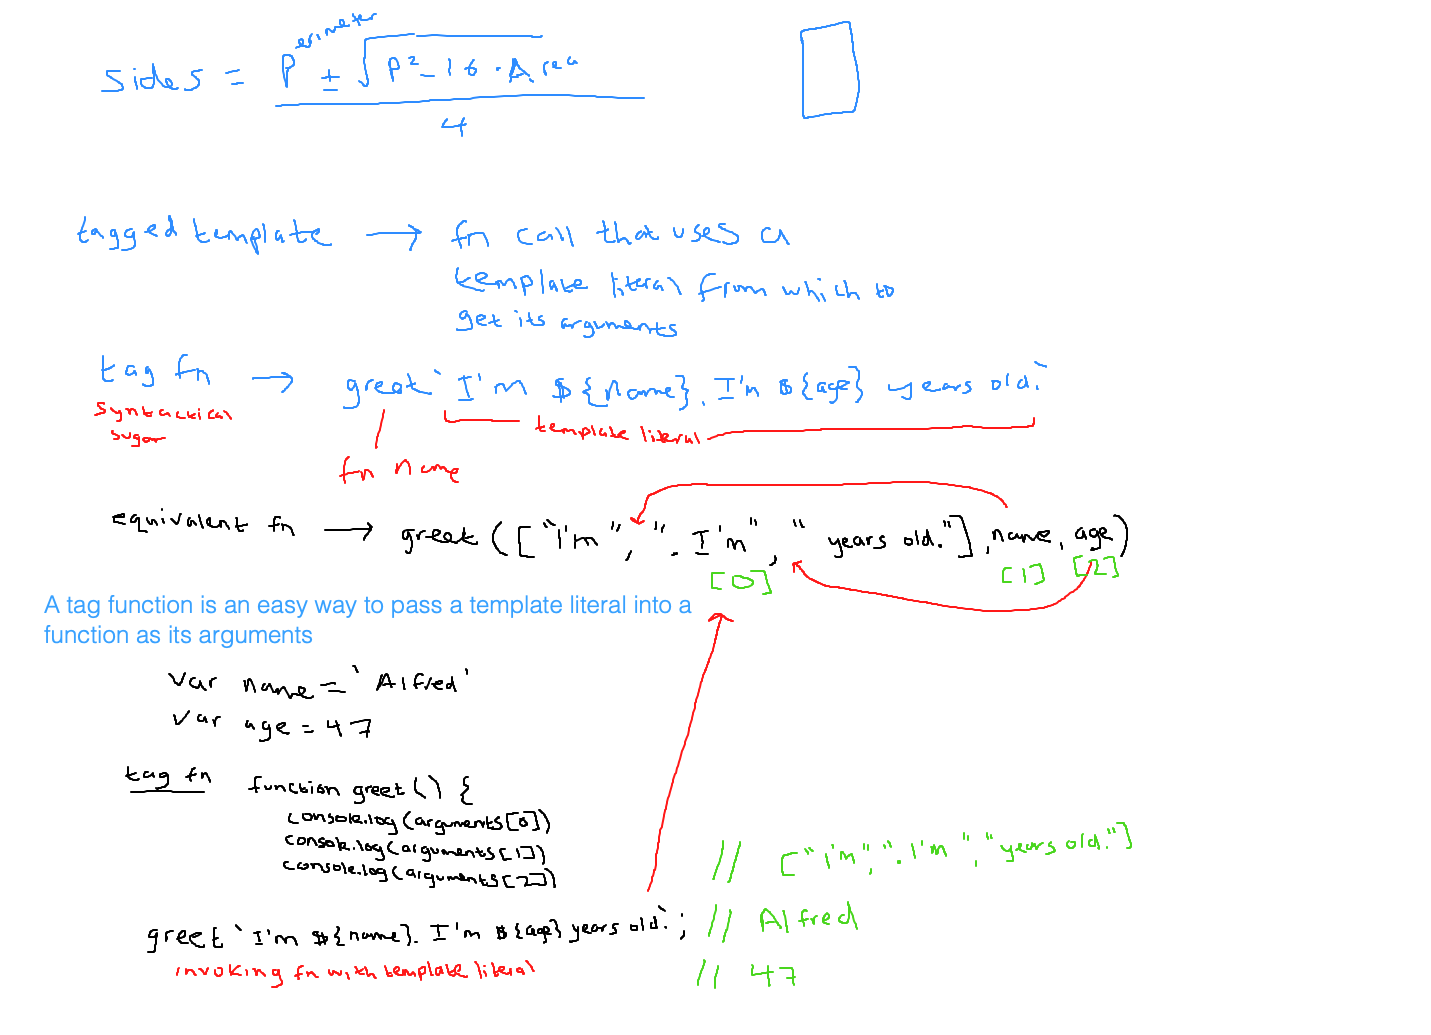 sides = Perimeter ± √P² - 16 · Area
4
tagged template → fn call that uses a
template literal from which to
get its arguments
tag fn → greet`I'm ${name}. I'm ${age} years old.`
syntactical
sugar
template literal
fn name
equivalent fn → greet(["I'm", ". I'm", " years old."], name, age)
[0] [1] [2]
A tag function is an easy way to pass a template literal into a
function as its arguments
var name = `Alfred'
var age = 47
tag fn function greet() {
console.log(arguments[0])
console.log(arguments[1])
console.log(arguments[2])
// ["I'm", ". I'm ", "years old."]
greet`I'm ${name}. I'm ${age} years old.`; // Alfred
invoking fn with template literal
// 47